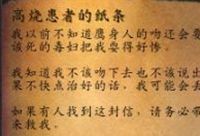 高烧患者的纸条
我以前不知道鹰身人的吻还会要
该死的毒妇把我害得好惨。
我知道我不该吻下去也不该说出
果不快点治好的话，我可能会丢
如果有人找到这封信，请务必带
来救我。